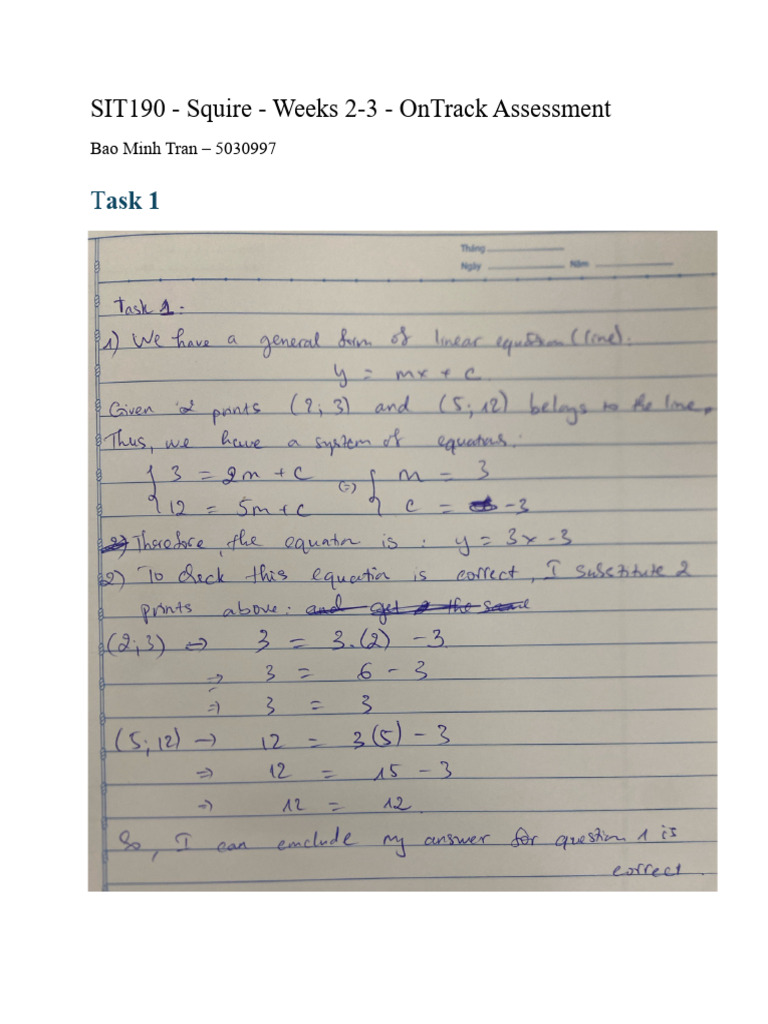 SIT190 - Squire - Weeks 2-3 - OnTrack Assessment
Bao Minh Tran – 5030997
Task 1
Tháng
Ngày Năm
Task 1:
1) We have a general form of linear equation (line).
y = mx + c
Given 2 points (2; 3) and (5; 12) belongs to the line.
Thus, we have a system of equations:
3 = 2m + c (=) m = 3
12 = 5m + c c = -3
Therefore, the equation is : y = 3x - 3
2) To check this equation is correct, I substitute 2
points above: and get the same
(2; 3) ⇔ 3 = 3.(2) - 3
⇒ 3 = 6 - 3
⇒ 3 = 3
(5; 12) → 12 = 3(5) - 3
⇒ 12 = 15 - 3
⇒ 12 = 12
So, I can conclude my answer for question 1 is
correct.